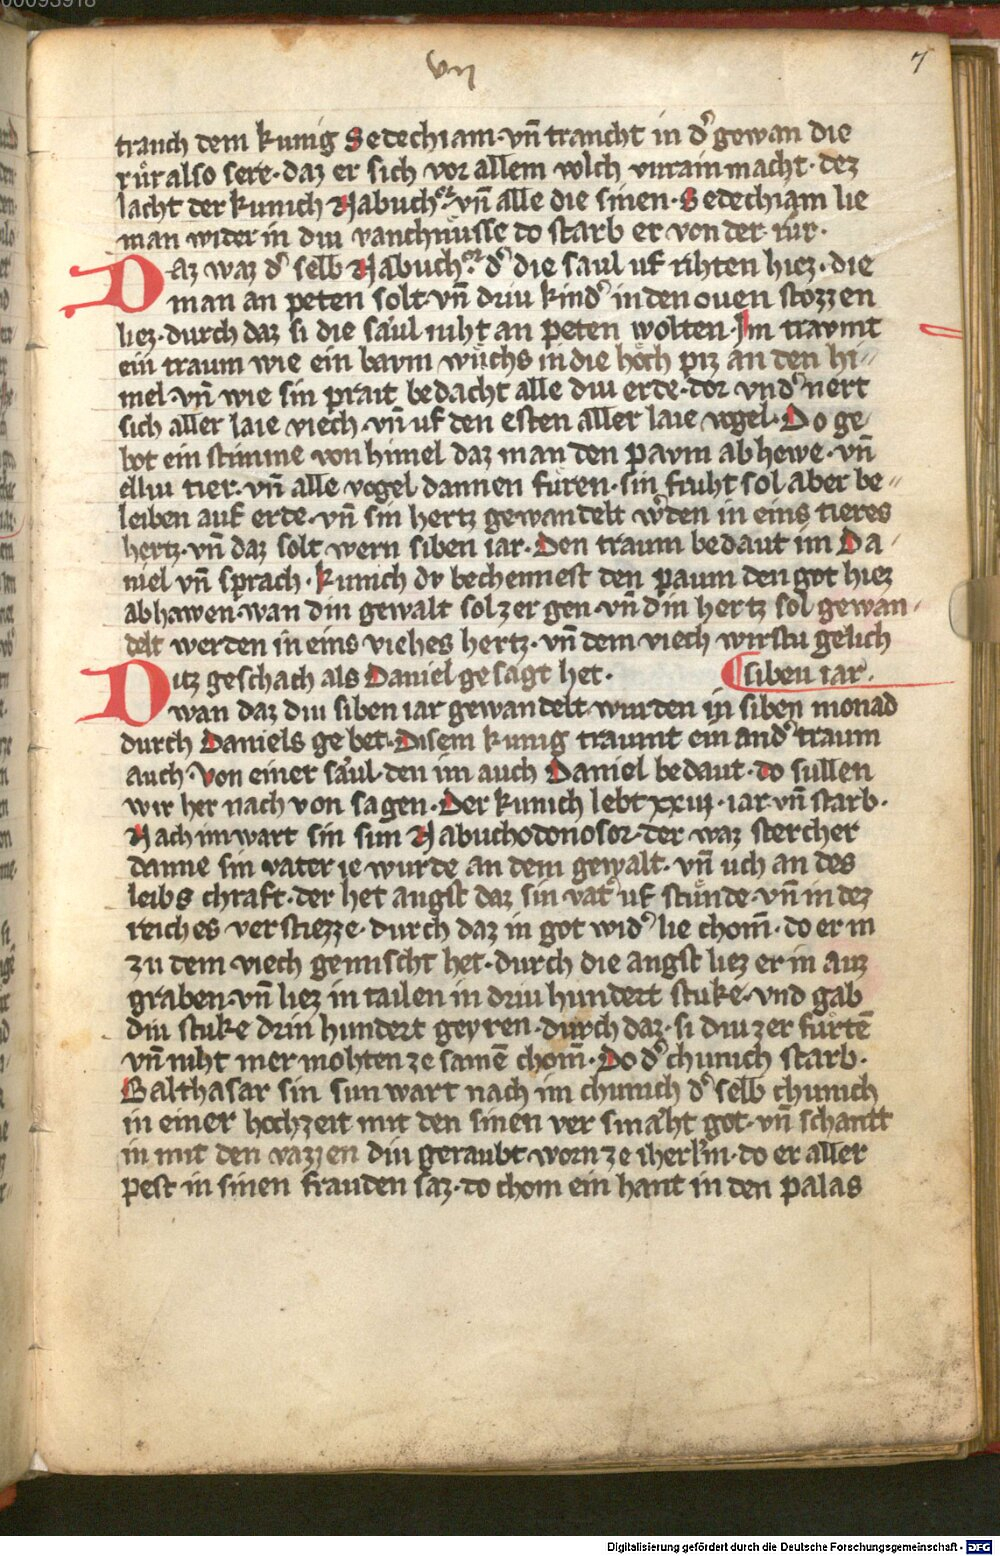 00093918
vii
7
trauch dem kunig Sedechiam · vn̄ tranckt in d᾽ gewan die
ruͤr also sere · daz er sich vor allem volch vnrain macht · dez
lacht der kunich Nabuch᾽ · vn̄ alle die sinen · Sedechiam lie
man wider in diu vanchnuͤsse do starb er von der ruͤr ·
Daz waz d᾽ selb Nabuch᾽ · d᾽ die saul uf rihten hiez · die
man an peten solt · vn̄ driu kind᾽ in den ouen stozzen
liez · durch daz si die saul niht an peten wolten · Im travmt
ein traum wie ein baum wuͤchs in die hoͤch piz an den hi〃
mel · vn̄ wie sin prait bedacht alle diu erde · dor vnd᾽ nert
sich aller laie viech · vn̄ uf den esten aller laie vogel · Do ge〃
bot ein stimme von himel daz man den pavm ab hewe · vn̄
elliu tier · vn̄ alle vogel dannen fuͤren · sin fruht sol aber be〃
leiben auf erde · vn̄ sin hertz gewandelt w᾽den in eins tieres
hertz · vn̄ daz solt wern siben iar · Den traum bedaut im Da/
niel vn̄ sprach · kunich dv bechennest den paum den got hiez
abhawen · wan din gewalt sol zergen · vn̄ din hertz sol gewan/
delt werden in eins viehes hertz · vn̄ dem viech wirstu gelich
Ditz geschach als Daniel gesagt het · ¶ siben iar ·
wan daz diu siben iar gewandelt wurden in siben monad
durch Daniels gebet · Disem kunig traumt ein and᾽ traum
auch von einer saul · den im auch Daniel bedaut · do sullen
wir her nach von sagen · Der kunich lebt xxiii · iar vn̄ starb ·
Nach im wart sin sun Nabuchodonosor · der waz stercher
danne sin vater ie wurde an dem gewalt · vn̄ uch an des
leibs chraft · der het angst daz sin vat᾽ uf stuͤnde · vn̄ in dez
reiches verstiezze · durch daz in got wid᾽ lie chom̄ · do er in
zu dem viech gemischt het · durch die angst liez er in auz
graben · vn̄ liez in tailen in driu hundert stuke · vnd gab
diu stuke driu hundert geyren · durch daz · si diu zer fuͤrtē
vn̄ niht mer mohten ze samē chom̄ · Do d᾽ chunich starb ·
Balthasar sin sun wart nach im chunich d᾽ selb chunich
in einer hochzeit mit den sinen versmaht got · vn̄ schantt
in mit den vazzen diu geraubt worn ze iherl᾽m · do er aller
pest in sinen frauden saz · do chom ein hant in den palas
Digitalisierung gefördert durch die Deutsche Forschungsgemeinschaft - DFG